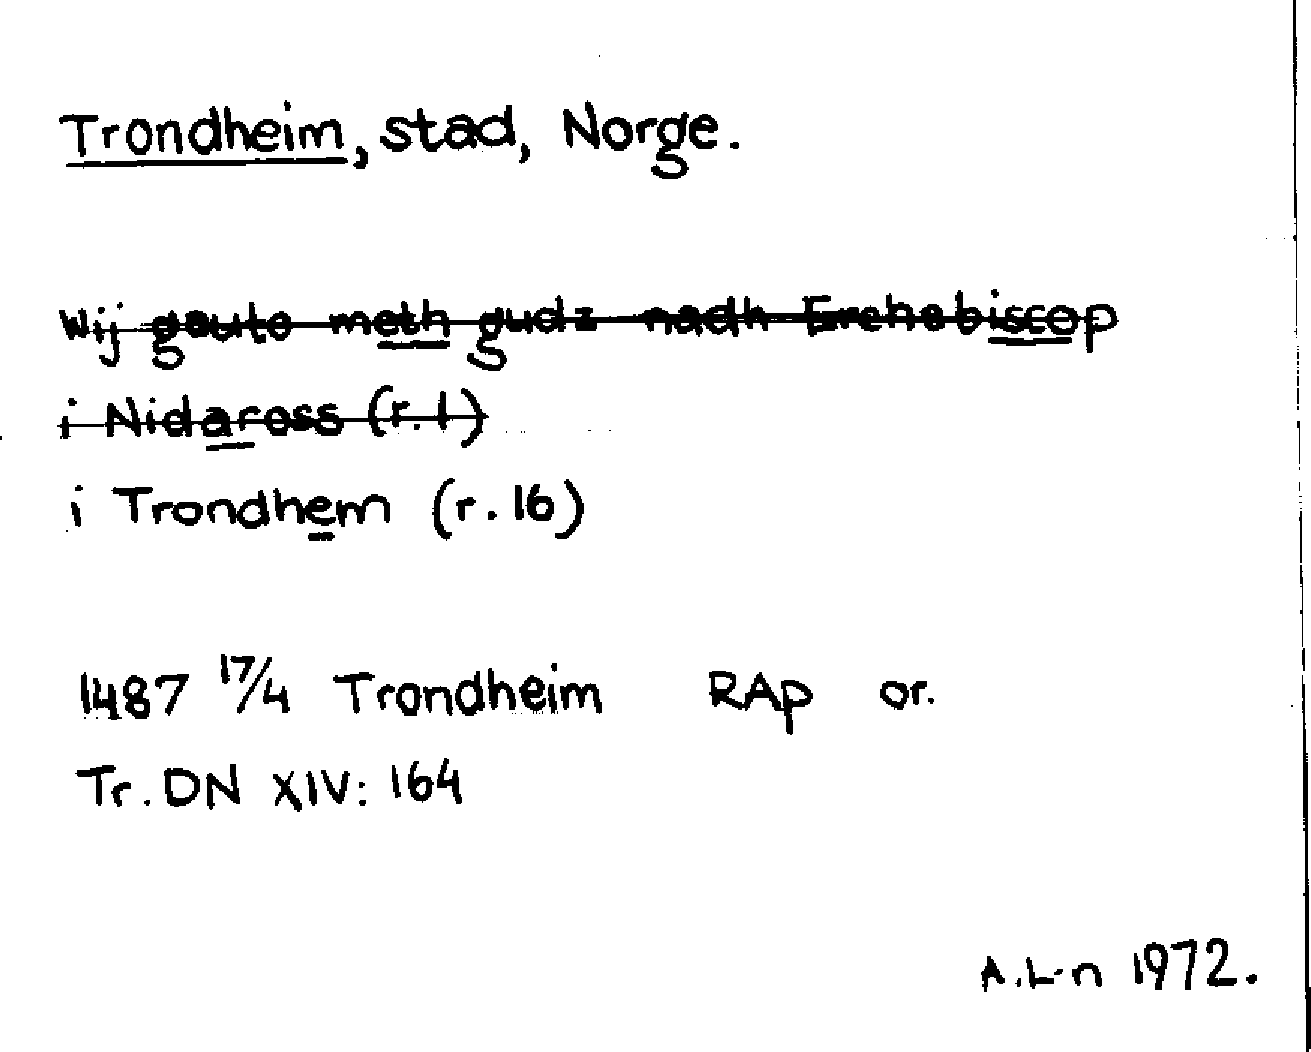 Trondheim, stad, Norge.
Wij gauto meth gudz nadh Erchebiscop
i Nidaross (r. 1)
i Trondhem (r. 16)
1487 17/4 Trondheim RAp or.
Tr. DN XIV: 164
A.L-n 1972.